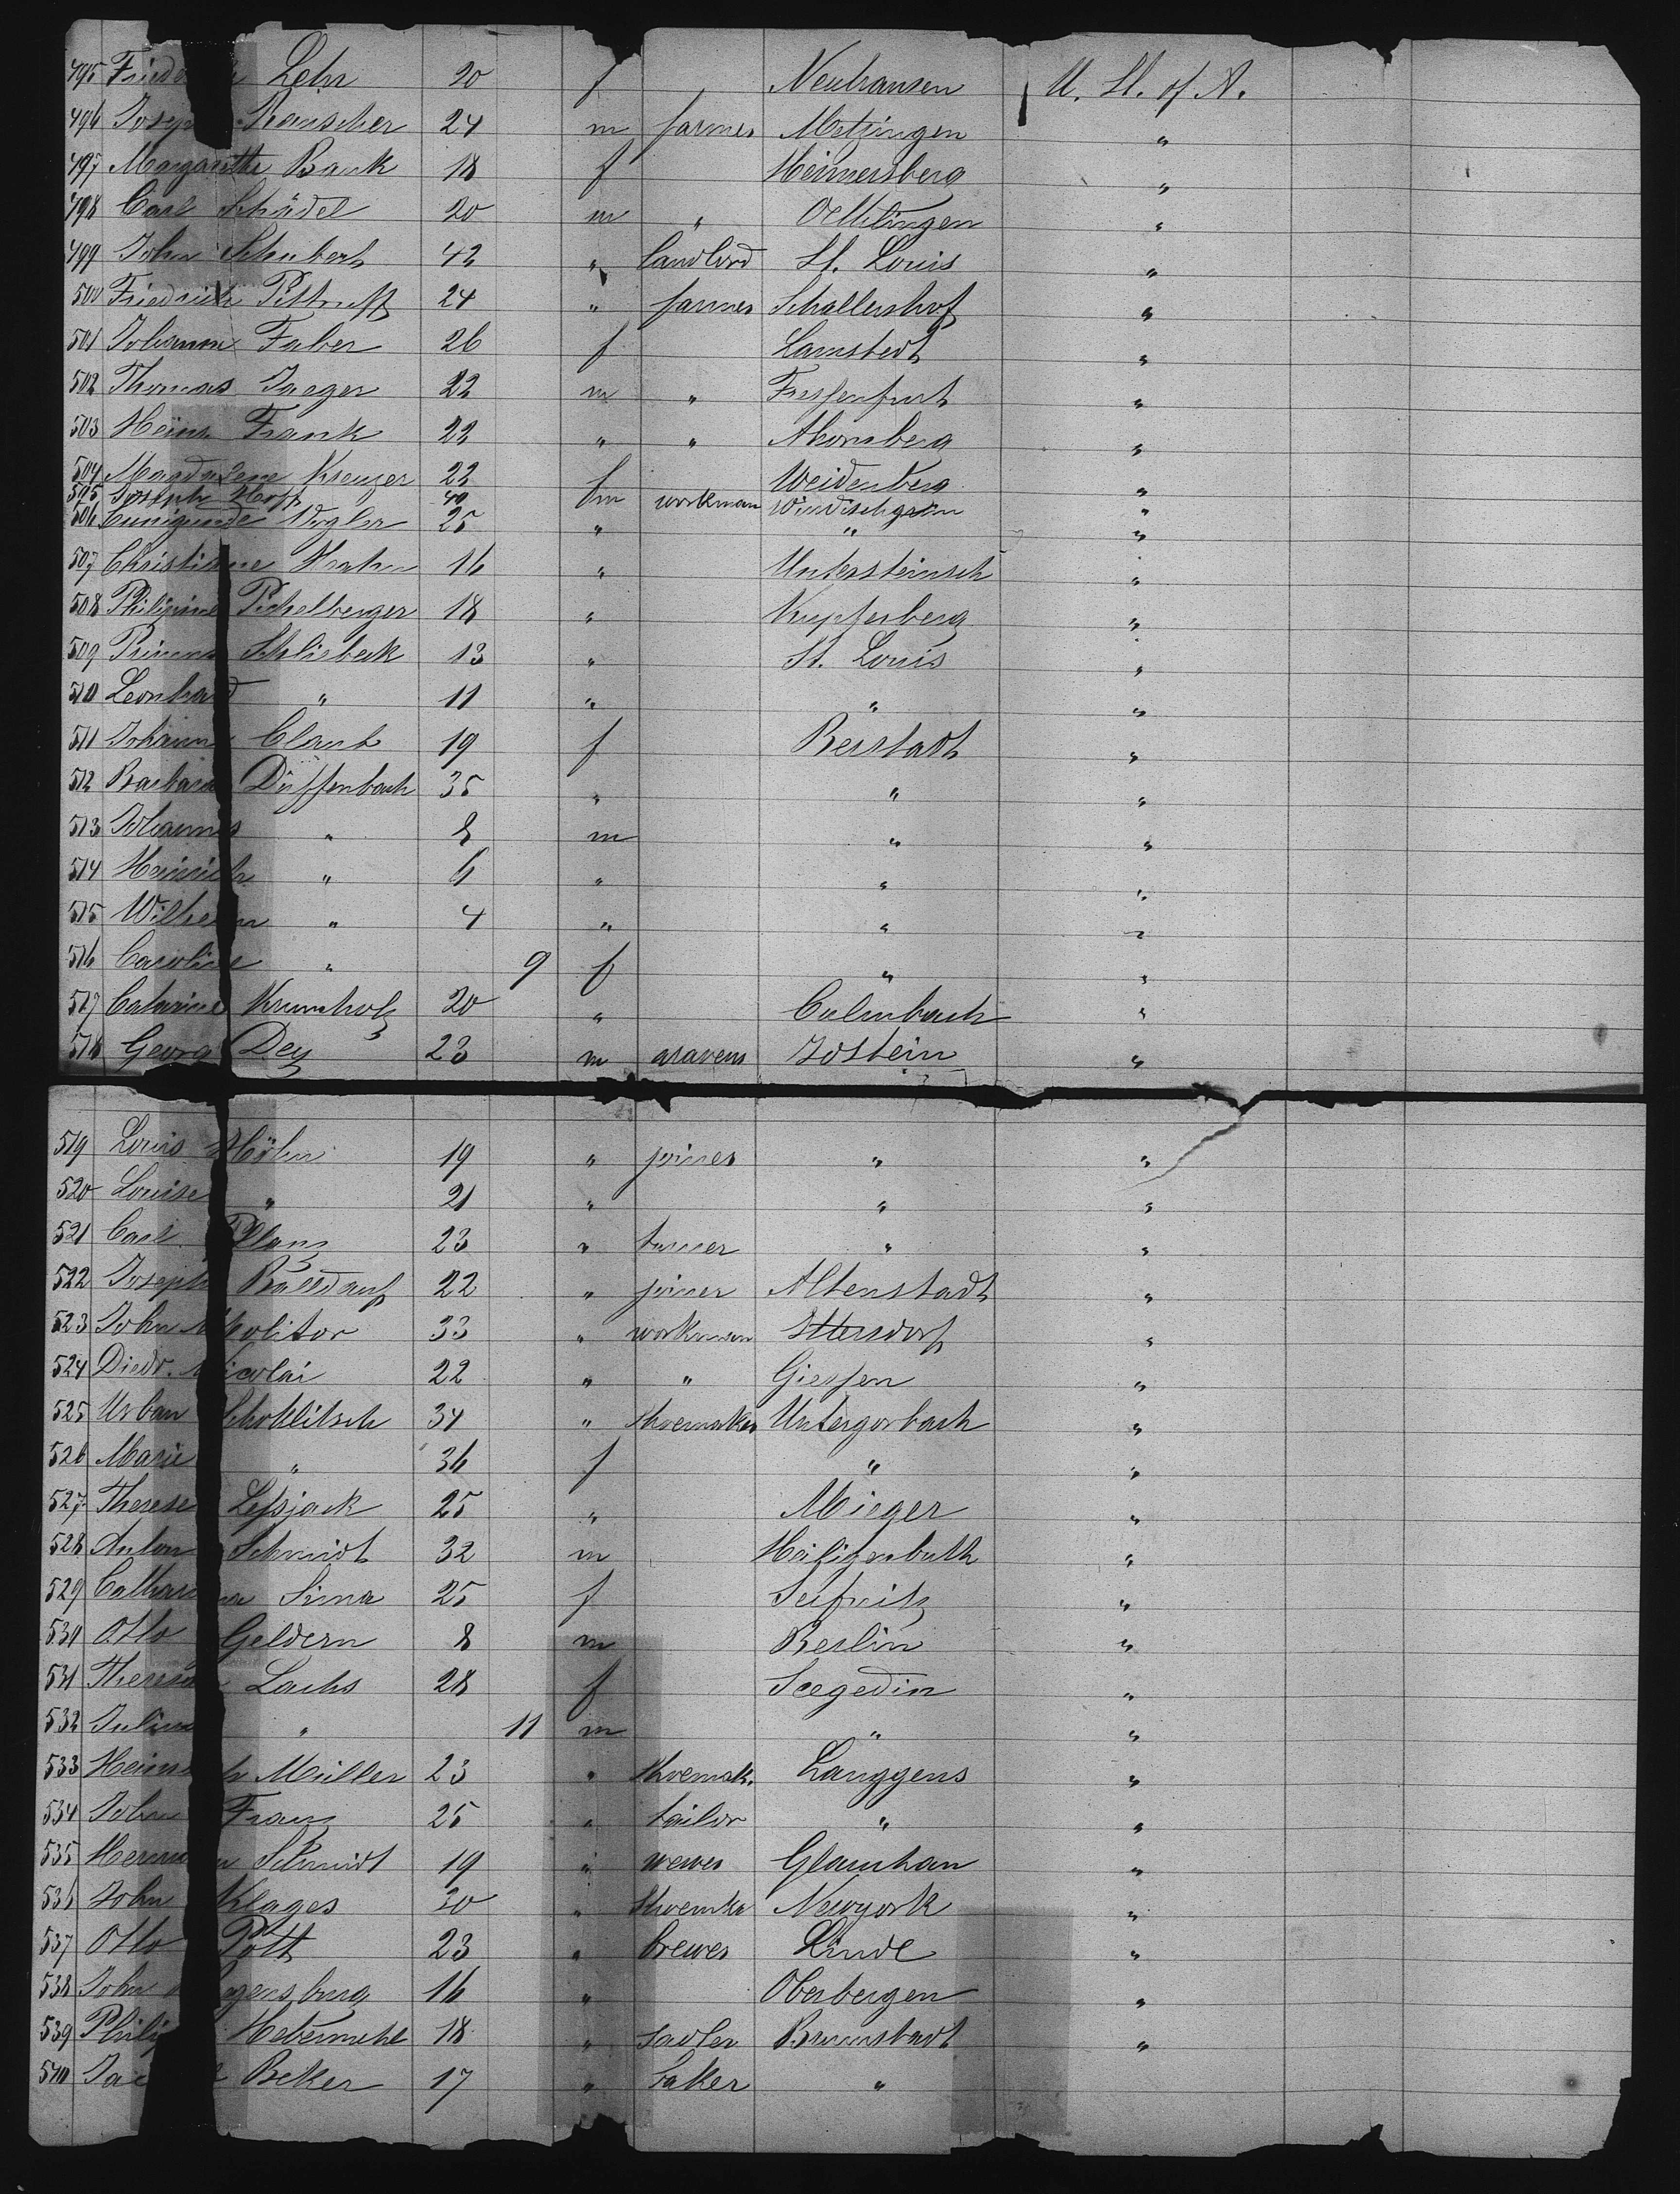 495 Friede Lehr 20 f Neuhausen U. St. of A.
496 Joseph Rauscher 24 m farmer Metzingen "
497 Margarethe Bauk 18 f Heimersberg "
498 Carl Schädel 20 m " Oettlingen "
499 John Schubert 42 " landlord St. Louis "
500 Friedrich 24 " farmer Schallershof "
501 Johanna Faber 26 f Lamstedt "
502 Thomas Jaeger 22 m " "
503 Heinr. Frank 22 " " Ahornsberg "
504 Magdalene Kreuzer 22 f Weidenberg "
505 Joseph Hoff 40 m workman Windischgrün "
506 Cunigunde Vogler 25 " " "
507 Christiane Hrahn 16 " Untersteinach "
508 Philipine Pichelberger 18 " Kupferberg "
509 Schlisbeck 13 " St. Louis "
510 Leonhard " 11 " " "
511 Johanna Claub 19 f Beistadt "
512 Barbara Düffenbach 35 " " "
513 Johannes " 8 m " "
514 Heinrich " 6 " " "
515 Wilhelm " 4 " " "
516 Caroline " 9 f " "
517 Catarine Krumholz 20 " Culmbach "
518 Georg Dey 23 m Idstein "
519 Louis Höhn 19 " joiner " "
520 Louise " 21 " " "
521 Carl Planz 23 " turner " "
522 Joseph Balldauf 22 " joiner Altenstadt "
523 John Molitor 33 " workman Ittersdorf "
524 Diedr. Nicolai 22 " " Giessen "
525 Urban Schoklitsch 34 " shoemaker Untergorbach "
526 Marie " 36 f " "
527 Therese Lessjack 25 " Mieger "
528 Anton Schmidt 32 m "
529 Catharina Sima 25 f Seifnitz "
530 Otto Geldern 8 m Berlin "
531 Theresia Lachs 28 f Scegedin "
532 Julius " 11 m " "
533 Heinrich Müller 23 " shoemak. Langgens "
534 John Franz 25 " tailor " "
535 Hermann Schmidt 19 " wewer Glauchau "
536 John Klages 30 " Newyork "
537 Otto Pott 23 " brewer Linde "
538 John 16 " Oberbergen "
539 Philip Hebermehl 18 " sadler Brunnstadt "
540 Beker 17 " baker "